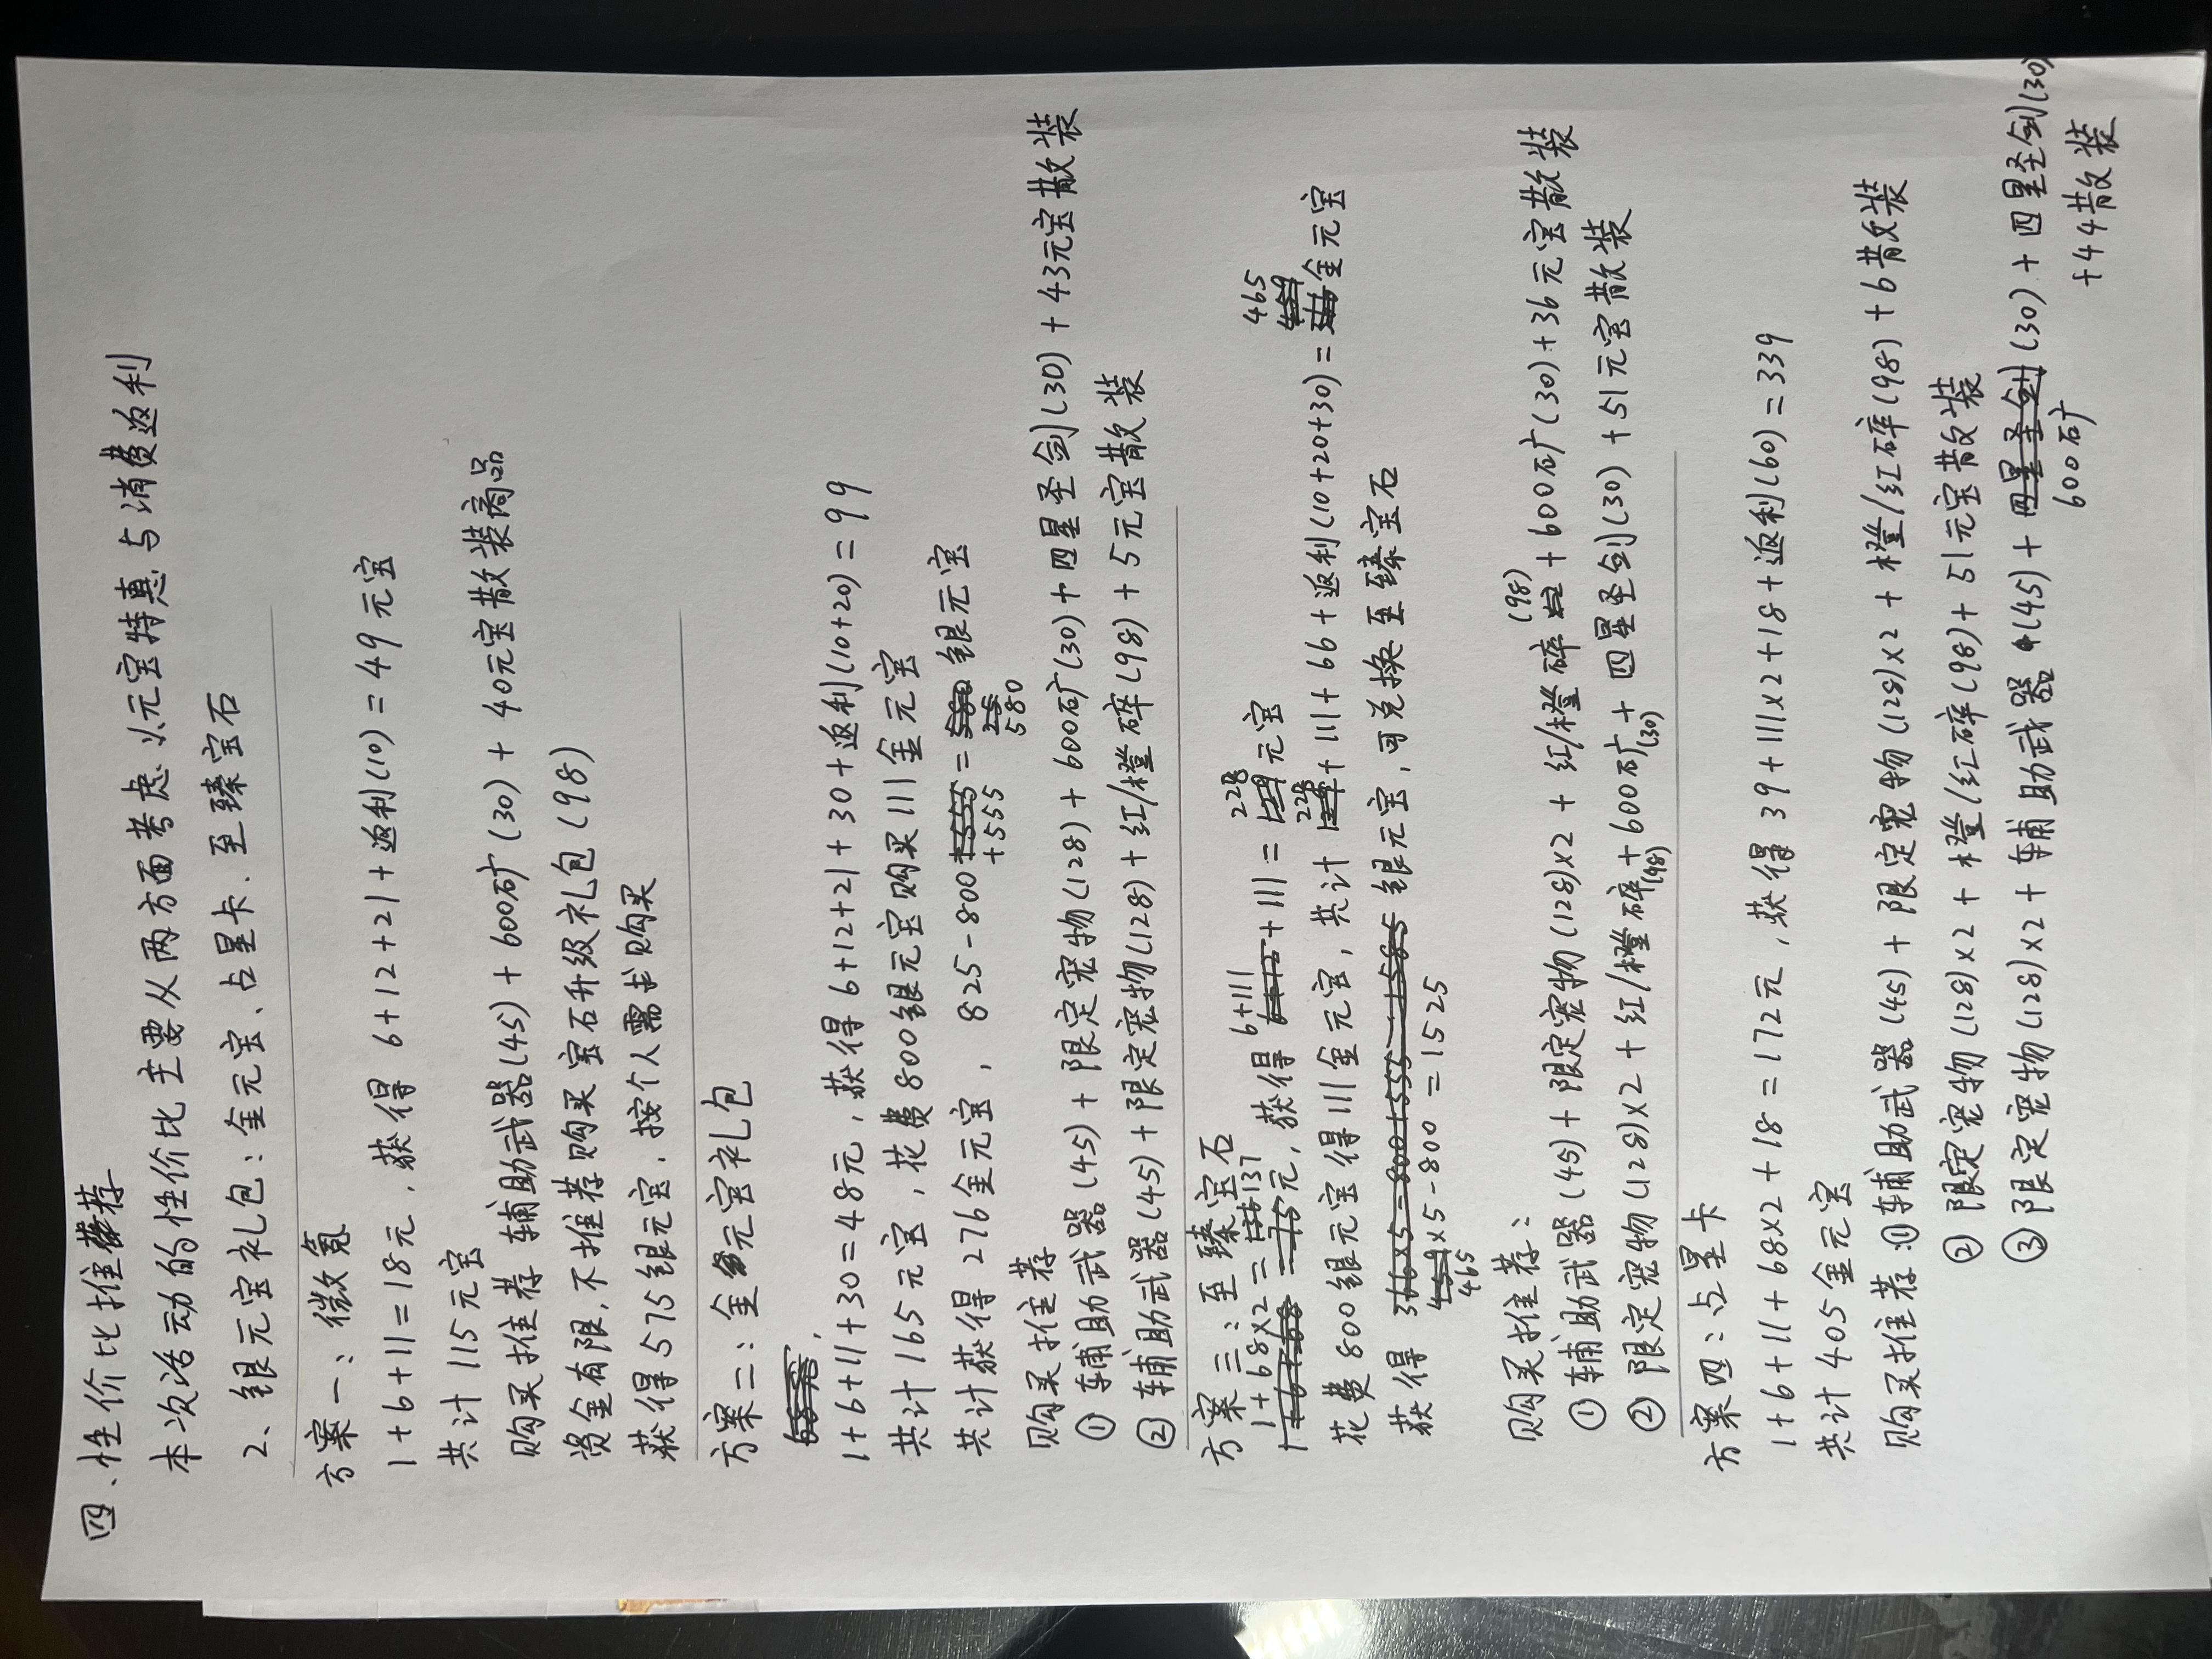 四、性价比推荐
本次活动的性价比主要从两方面考虑:元宝特惠与消费返利
2、银元宝礼包:金元宝、占星卡、至臻宝石
方案一:微氪
1+6+11=18元,获得 6+12+21+返利(10)=49元宝
共计 115元宝
购买推荐 辅助武器(45)+600矿(30)+40元宝散装商品
资金有限,不推荐购买宝石升级礼包(98)
获得575银元宝,按个人需求购买
方案二:金元宝礼包
1+6+11+30=48元,获得 6+12+21+30+返利(10+20)=99
共计165元宝,花费800银元宝购买111金元宝
共计获得276金元宝,825-800+555=580 银元宝
购买推荐
① 辅助武器(45)+限定宠物(128)+600矿(30)+四星圣剑(30)+43元宝散装
② 辅助武器(45)+限定宠物(128)+红/橙碎(98)+5元宝散装
方案三:至臻宝石
1+68×2=137元,获得 6+111+111=228元宝
花费800银元宝得111金元宝,共计228+111+66+返利(10+20+30)=465金元宝
获得 465×5-800=1525 银元宝,可兑换至臻宝石
购买推荐:
① 辅助武器(45)+限定宠物(128)×2+红/橙碎(98)+600矿(30)+36元宝散装
② 限定宠物(128)×2+红/橙碎(98)+600矿(30)+四星圣剑(30)+51元宝散装
方案四:占星卡
1+6+11+68×2+18=172元,获得39+111×2+18+返利(60)=339
共计405金元宝
购买推荐:①辅助武器(45)+限定宠物(128)×2+橙/红碎(98)+6散装
② 限定宠物(128)×2+橙/红碎(98)+51元宝散装
③ 限定宠物(128)×2+辅助武器(45)+600矿(30)+四星圣剑(30)
+44散装